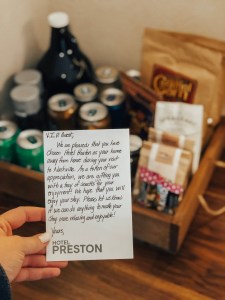 V.I.P. Guest,
We are pleased that you have
chosen Hotel Preston as your home
away from home during your visit
to Nashville. As a token of our
appreciation, we are gifting you
with a tray of snacks for your
enjoyment! We hope that you will
enjoy your stay. Please let us know
if we can do anything to make your
stay more relaxing and enjoyable!
Yours,
HOTEL
PRESTON